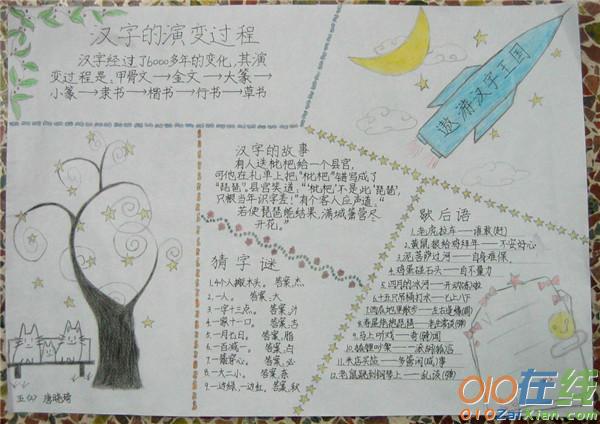 汉字的演变过程
汉字经过了6000多年的变化,其演
变过程是:甲骨文→金文→大篆→
小篆→隶书→楷书→行书→草书
遨游汉字王国
汉字的故事
有人送枇杷给一个县官,
可他在礼单上把“枇杷”错写成了
“琵琶”。县官笑道:“‘枇杷’不是此‘琵琶’,
只恨当年识字差!”有个客人应声道:“
若使琵琶能结果,满城箫管尽
开花。”
猜字谜
1.4个人搬木头。 答案:杰
2.一人。 答案:大
3.一字十三点。 答案:汁
4.一家十一口。 答案:吉
5.一月七日。 答案:脂
6.一百减一。 答案:白
7.一箭穿心。 答案:必
8.一大二小。 答案:奈
9.一边绿,一边红。答案:秋
歇后语
1.老虎拉车——谁敢(赶)
2.黄鼠狼给鸡拜年——不安好心
3.泥菩萨过河——自身难保
4.鸡蛋碰石头——自不量力
5.四月的冰河——开动(冻)啦
6.十五只吊桶打水——七上八下
9.马上听戏
12.老鼠跳到钢琴上——乱谈(弹)
五(4) 唐晓琦
010在线
010ZaiXian.com